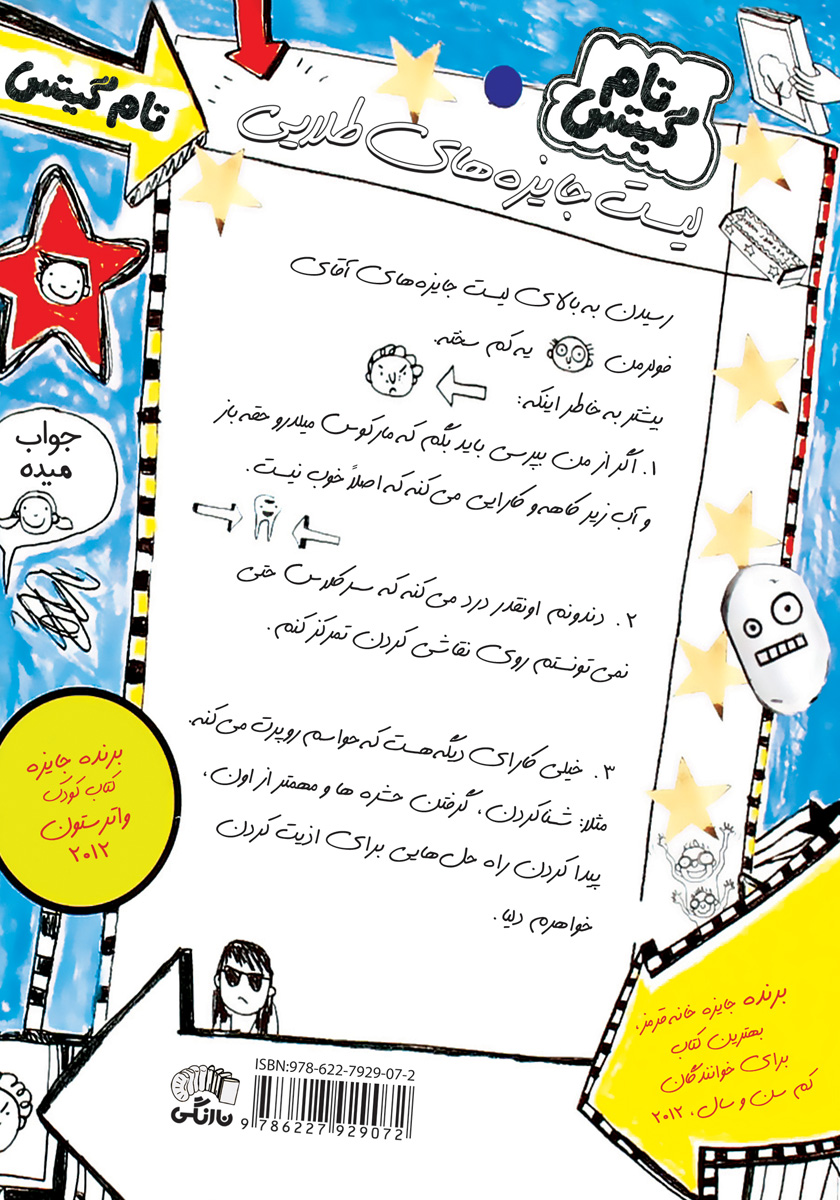 تام گیتس
تام
گیتس
لیست جایزه‌های طلایی
رسیدن به بالای لیست جایزه‌های آقای
فولرمن یه کم سخته.
بیشتر به خاطر اینکه:
۱. اگر از من بپرسی باید بگم که مارکوس میلدرو حقه باز
و آب زیر کاهه و کارایی می‌کنه که اصلاً خوب نیست.
۲. دندونم اونقدر درد می‌کنه که سر کلاس حتی
نمی‌تونستم روی نقاشی کردن تمرکز کنم.
۳. خیلی کارای دیگه هست که حواسم رو پرت می‌کنه.
مثلا: شنا کردن، گرفتن حشره ها و مهمتر از اون،
پیدا کردن راه حل‌هایی برای اذیت کردن
خواهرم دلیا.
جواب
میده
برنده جایزه
کتاب کودک
واترستون
۲۰۱۲
برنده جایزه خانه قرمز،
بهترین کتاب
برای خوانندگان
کم سن و سال، ۲۰۱۲
نارنگی
ISBN:978-622-7929-07-2
9 786227 929072